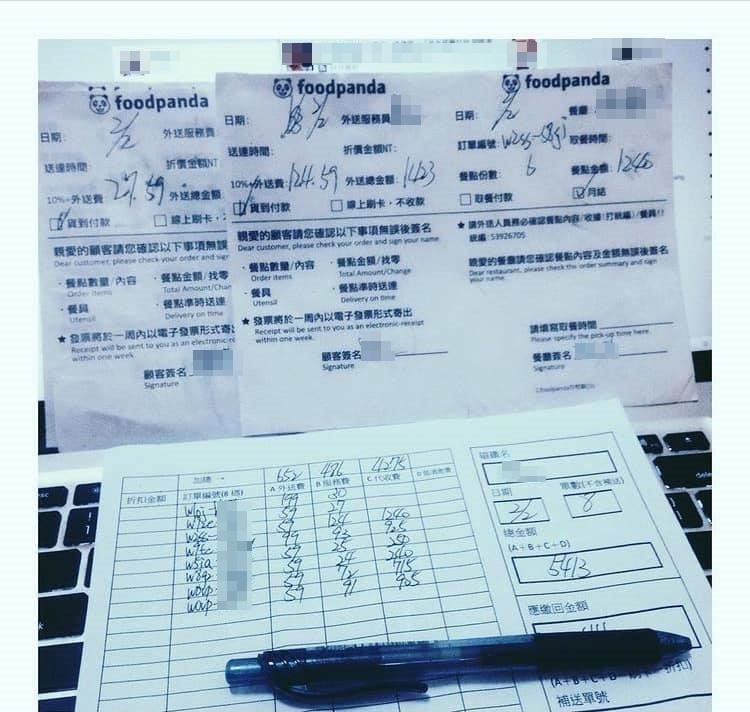 foodpanda
日期: 2/2
外送服務員
送達時間:
折價金額NT:
10%+外送費: 27.59
外送總金額
貨到付款
線上刷卡, 不
親愛的顧客請您確認以下事項無誤
Dear customer, please check your order and sign
· 餐點數量/內容
Order items
· 餐點金額/
Total Amount/Chan
· 餐具
Utensil
· 餐點準時送達
Delivery on time
★ 發票將於一周內以電子發票形式寄出
Receipt will be sent to you as an electronic-re
within one week.
顧客簽名
Signature
foodpanda
日期: 2/2
外送服務員
送達時間:
折價金額NT:
10%+外送費: 124.59
外送總金額: 1423
貨到付款
線上刷卡, 不收款
親愛的顧客請您確認以下事項無誤後簽名
Dear customer, please check your order and sign your name
· 餐點數量/內容
Order items
· 餐點金額/找零
Total Amount/Change
· 餐具
Utensil
· 餐點準時送達
Delivery on time
★ 發票將於一周內以電子發票形式寄出
Receipt will be sent to you as an electronic-receipt
within one week.
顧客簽名
Signature
foodpanda
日期: 2/2
餐廳:
訂單編號:
取餐時間:
餐點份數: 6
餐點金額: 1240
取餐付款
月結
★ 請外送人員務必確認餐點內容/收據(打統編)/餐具!!
統編: 53926705
親愛的餐廳請您確認餐點內容及金額無誤後簽名
Dear restaurant, please check the order summary and sign
your name.
請填寫取餐時間
Please specify the pick-up time here.
餐廳簽名
Signature
652 486 4275
折扣金額 訂單編號(8 碼) A 外送費 B 服務費 C 代收費
199 20
59 27
59 124 1240
99 93 925
59 25 250
59 24 240
59 72 715
59 91 905
日期
2/2
單數(不含補送)
8
總金額
(A+B+C+D)
5413
應繳回金額
補送單號